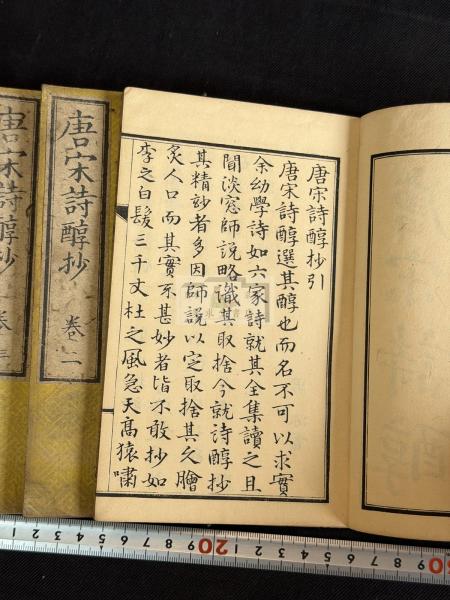 唐宋詩醇抄引
唐宋詩醇選其醇也而名不可以求實
余幼學詩如六家詩就其全集讀之且
聞淡窓師說略識其取捨今就詩醇抄
其精妙者多因師說以定取捨其久膾
炙人口而其實不甚妙者皆不敢抄如
李之白髮三千丈杜之風急天高猿嘯
唐宋詩醇抄 卷二
唐宋詩醇抄 卷三
1 2 3 4 5 6 7 8 9 20 1 2 3 4 5 6 7 8 9